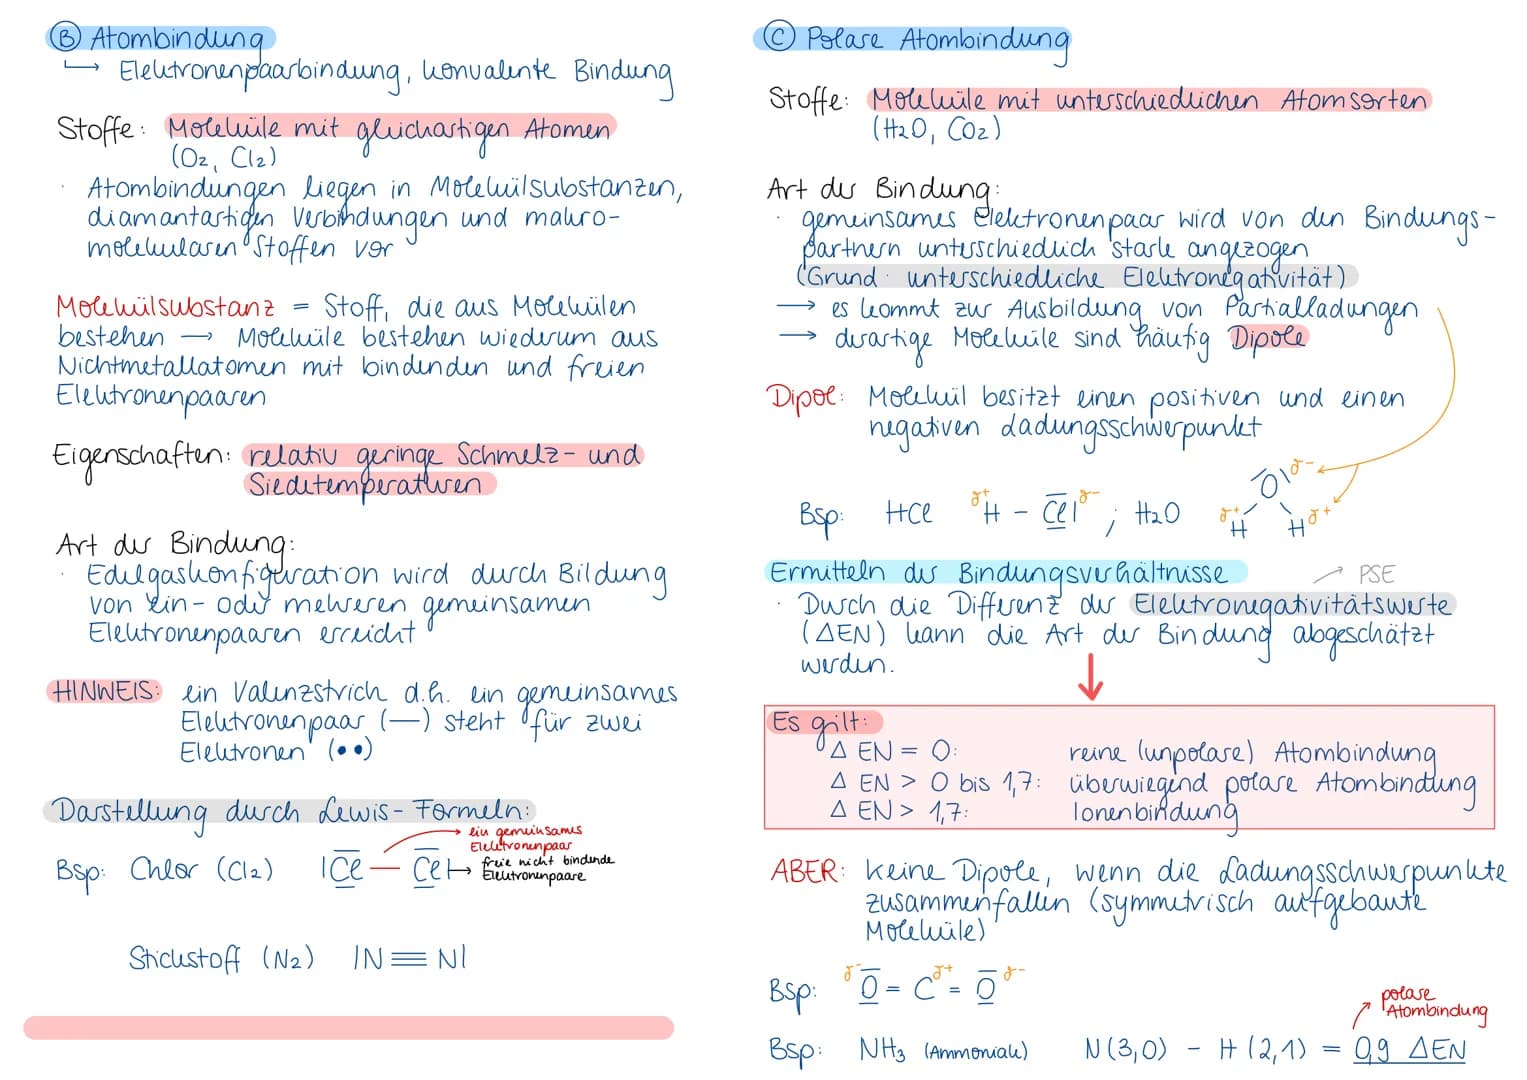 Ⓑ Atombindung
↳ Elektronenpaarbindung, konvalente Bindung
Stoffe: Moleküle mit gleichartigen Atomen
(O₂, Cl₂)
· Atombindungen liegen in Molekülsubstanzen,
diamantartigen Verbindungen und makro-
molekularen Stoffen vor
Molekülsubstanz = Stoff, die aus Molekülen
bestehen → Moleküle bestehen wiederum aus
Nichtmetallatomen mit bindenden und freien
Elektronenpaaren
Eigenschaften: relativ geringe Schmelz- und
Siedetemperaturen
Art der Bindung:
· Edelgaskonfiguration wird durch Bildung
von ein- oder mehreren gemeinsamen
Elektronenpaaren erreicht
HINWEIS: ein Valenzstrich d.h. ein gemeinsames
Elektronenpaar (—) steht für zwei
Elektronen (••)
Darstellung durch Lewis-Formeln:
ein gemeinsames
Elektronenpaar
Bsp: Chlor (Cl₂) |Cl — Cl| → freie nicht bindende
Elektronenpaare
Stickstoff (N₂) |N≡N|
Ⓒ Polare Atombindung
Stoffe: Moleküle mit unterschiedlichen Atomsorten
(H₂O, CO₂)
Art der Bindung:
· gemeinsames Elektronenpaar wird von den Bindungs-
partnern unterschiedlich stark angezogen
(Grund: unterschiedliche Elektronegativität)
→ es kommt zur Ausbildung von Partialladungen
→ derartige Moleküle sind häufig Dipole
Dipol: Molekül besitzt einen positiven und einen
negativen Ladungsschwerpunkt
Bsp: HCl δ+ H – Cl| δ- ; H₂O O δ- δ+ H H δ+
Ermitteln der Bindungsverhältnisse → PSE
· Durch die Differenz der Elektronegativitätswerte
(ΔEN) kann die Art der Bindung abgeschätzt
werden.
Es gilt:
Δ EN = 0: reine (unpolare) Atombindung
Δ EN > 0 bis 1,7: überwiegend polare Atombindung
Δ EN > 1,7: Ionenbindung
ABER: keine Dipole, wenn die Ladungsschwerpunkte
zusammenfallen (symmetrisch aufgebaute
Moleküle)
Bsp: δ- O = C δ+ = O δ-
polare
Atombindung
Bsp: NH₃ (Ammoniak) N(3,0) – H(2,1) = 0,9 ΔEN